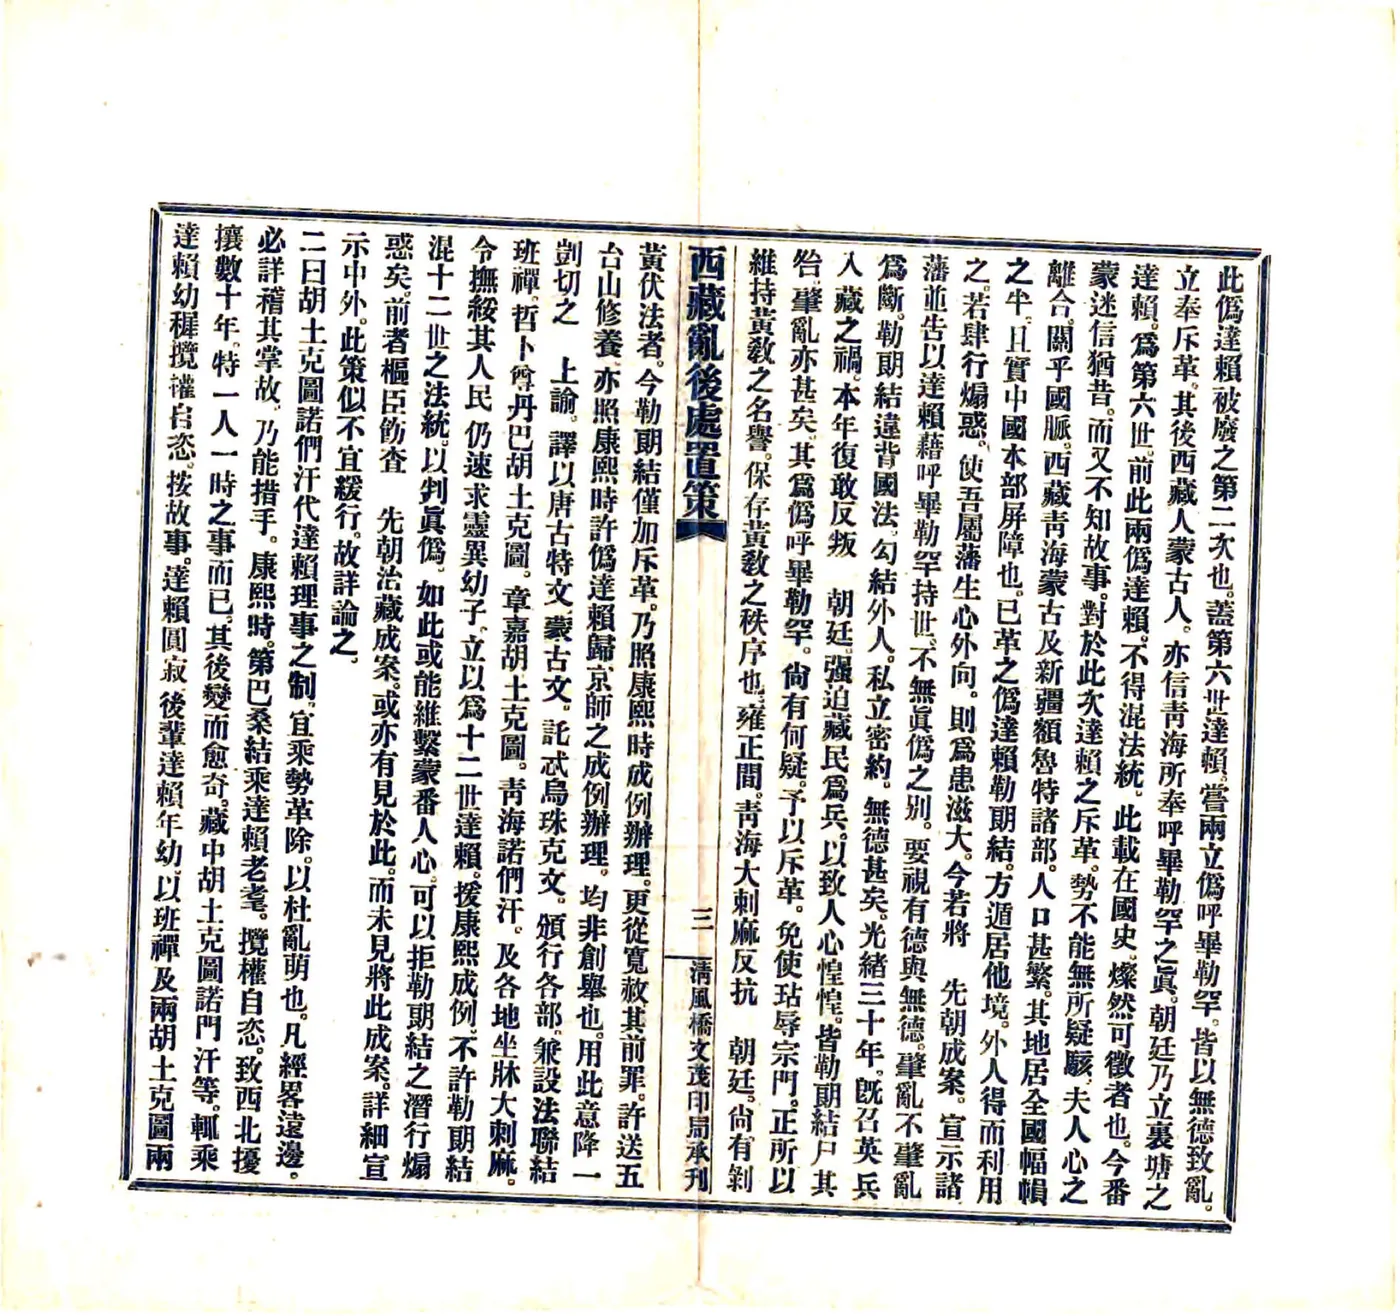 此僞達賴被廢之第二次也。蓋第六世達賴。嘗兩立僞呼畢勒罕。皆以無德致亂。
立奉斥革。其後西藏人蒙古人。亦信靑海所奉呼畢勒罕之眞。朝廷乃立裏塘之
達賴。爲第六世。前此兩僞達賴。不得混法統。此載在國史。燦然可徵者也。今番
蒙迷信猶昔。而又不知故事。對於此次達賴之斥革。勢不能無所疑駭、夫人心之
離合。關乎國脈。西藏靑海蒙古及新疆額魯特諸部。人口甚繁。其地居全國幅幀
之半。且實中國本部屏障也。已革之僞達賴勒朗結。方遁居他境。外人得而利用
之。若肆行煽惑。使吾屬藩生心外向。則爲患滋大。今若將　先朝成案、宣示諸
藩並告以達賴藉呼畢勒罕持世、不無眞僞之別。要視有德與無德。肇亂不肇亂
爲斷。勒朗結違背國法。勾結外人。私立密約。無德甚矣。光緒三十年。旣召英兵
入藏之禍。本年復敢反叛　朝廷。强迫藏民爲兵。以致人心惶惶。皆勒朗結尸其
咎。肇亂亦甚矣。其爲僞呼畢勒罕。尙有何疑。予以斥革。免使玷辱宗門。正所以
維持黃敎之名譽。保存黃敎之秩序也、雍正間。靑海大刺麻反抗　朝廷。尙有剝
西藏亂後處置策
三
淸風橋文茂印局承刊
黃伏法者。今勒朗結僅加斥革。乃照康熙時成例辦理。更從寬赦其前罪。許送五
台山修養、亦照康熙時許僞達賴歸京師之成例辦理。均非創舉也。用此意降一
剴切之　上諭。譯以唐古特文、蒙古文。託忒烏珠克文。頒行各部、兼設法聯結
班禪。哲卜尊丹巴胡土克圖。章嘉胡土克圖。靑海諾們汗。及各地坐牀大刺麻。
令撫綏其人民仍速求靈異幼子。立以爲十二世達賴。援康熙成例、不許勒朗結
混十二世之法統。以判眞僞。如此或能維繫蒙番人心。可以拒勒朗結之潛行煽
惑矣。前者樞臣飭查　先朝治藏成案。或亦有見於此。而未見將此成案。詳細宣
示中外。此策似不宜緩行。故詳論之。
二曰胡土克圖諾們汗代達賴理事之制。宜乘勢革除。以杜亂萌也。凡經畧遠邊。
必詳稽其掌故、乃能措手。康熙時。第巴桑結乘達賴老耄。攬權自恣。致西北擾
攘數十年。特一人一時之事而已。其後變而愈奇。藏中胡土克圖諾門汗等。輒乘
達賴幼穉攬權自恣。按故事。達賴圓寂、後輩達賴年幼。以班禪及兩胡土克圖兩